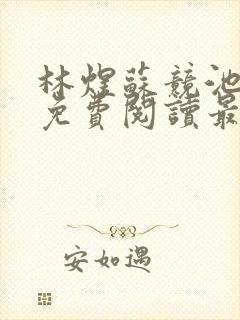 林煜蘇競池
免費閱讀最
安如遇